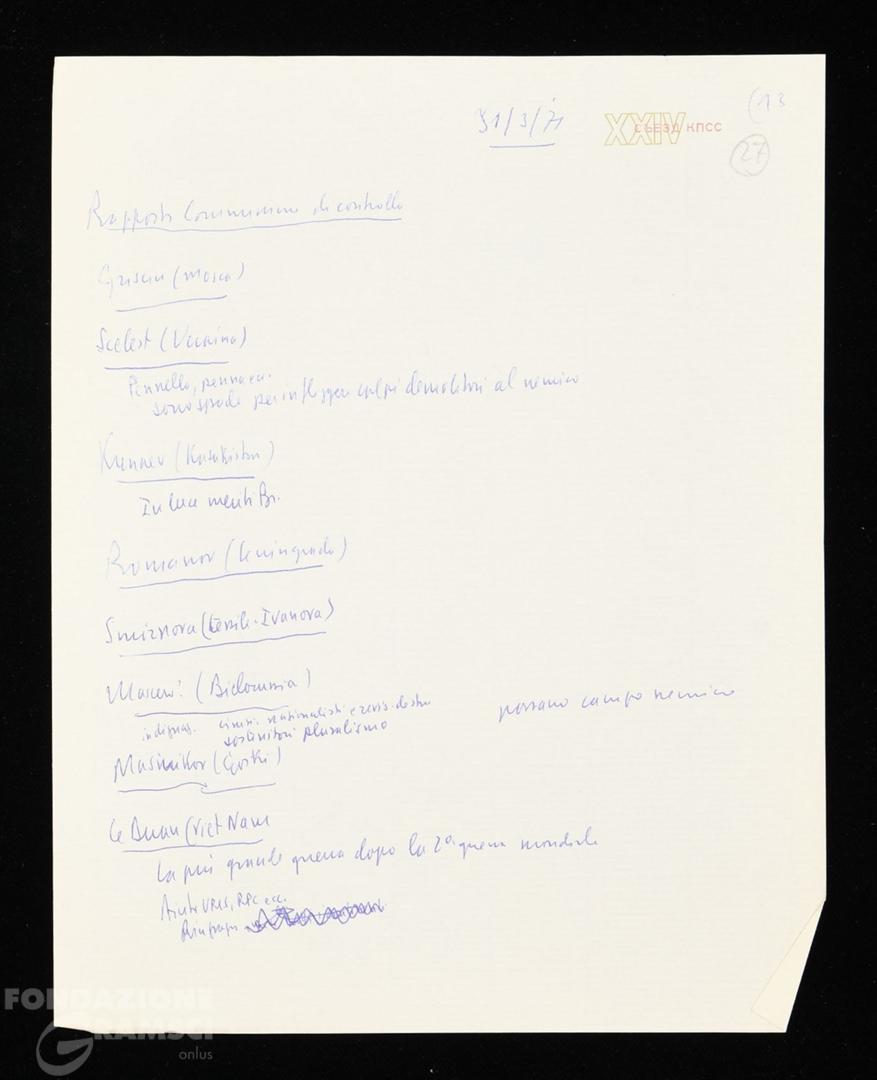 31/3/71
XXIV СЪЕЗД КПСС
(13
27
Rapporto Commissione di controllo
Griscin (Mosca)
Scelest (Ucraina)
Pennello, penna ecc.
sono spade per infliggere colpi demolitori al nemico
Kunaev (Kasakistan)
In luce meriti Br.
Romanov (Leningrado)
Smirnova (tessile-Ivanova)
(Bielorussia)
nazionalisti e revis. destra
sostenitori pluralismo
passano campo nemico
Maslnikov (Gorki)
Le Duan (Viet Nam
La più grande guerra dopo la 2a guerra mondiale
Aiuto URSS, RPC ecc.
FONDAZIONE
GRAMSCI
onlus